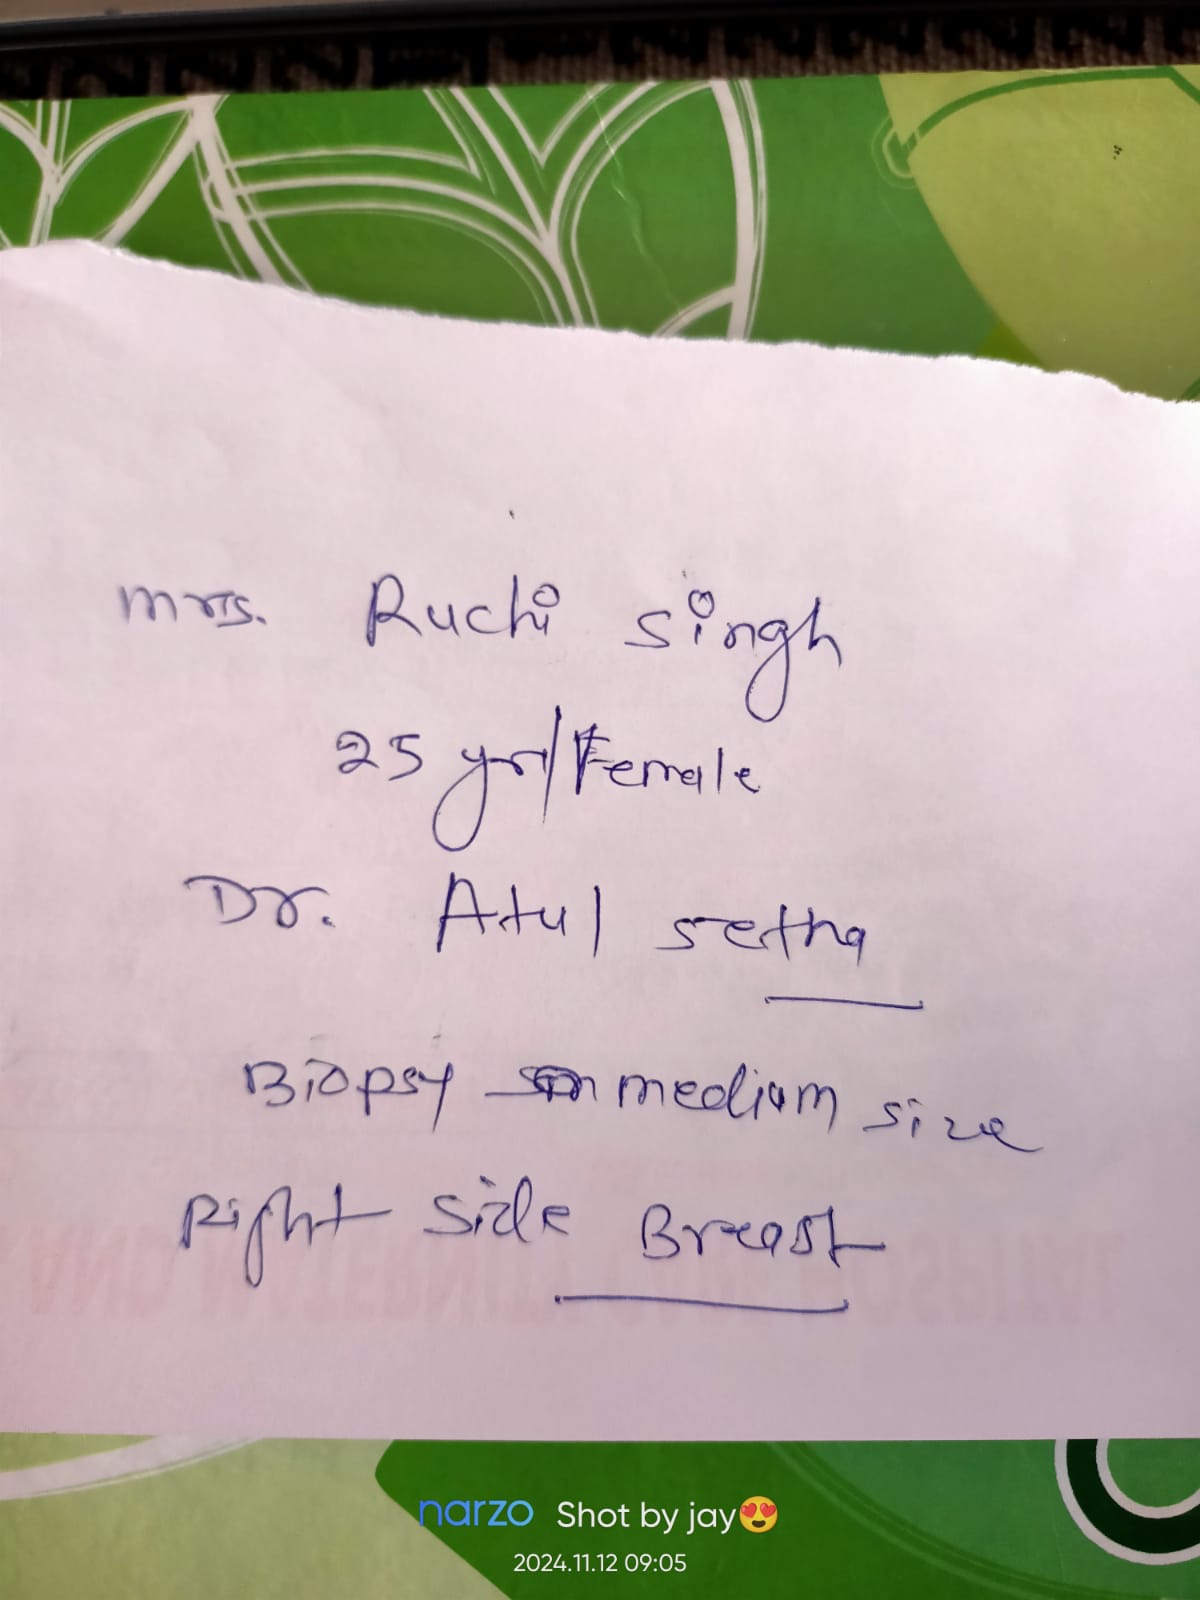 Mrs. Ruchi Singh
25 yr/Female
Dr. Atul setha
Biopsy medium size
Right side Breast
narzo Shot by jay😍
2024.11.12 09:05